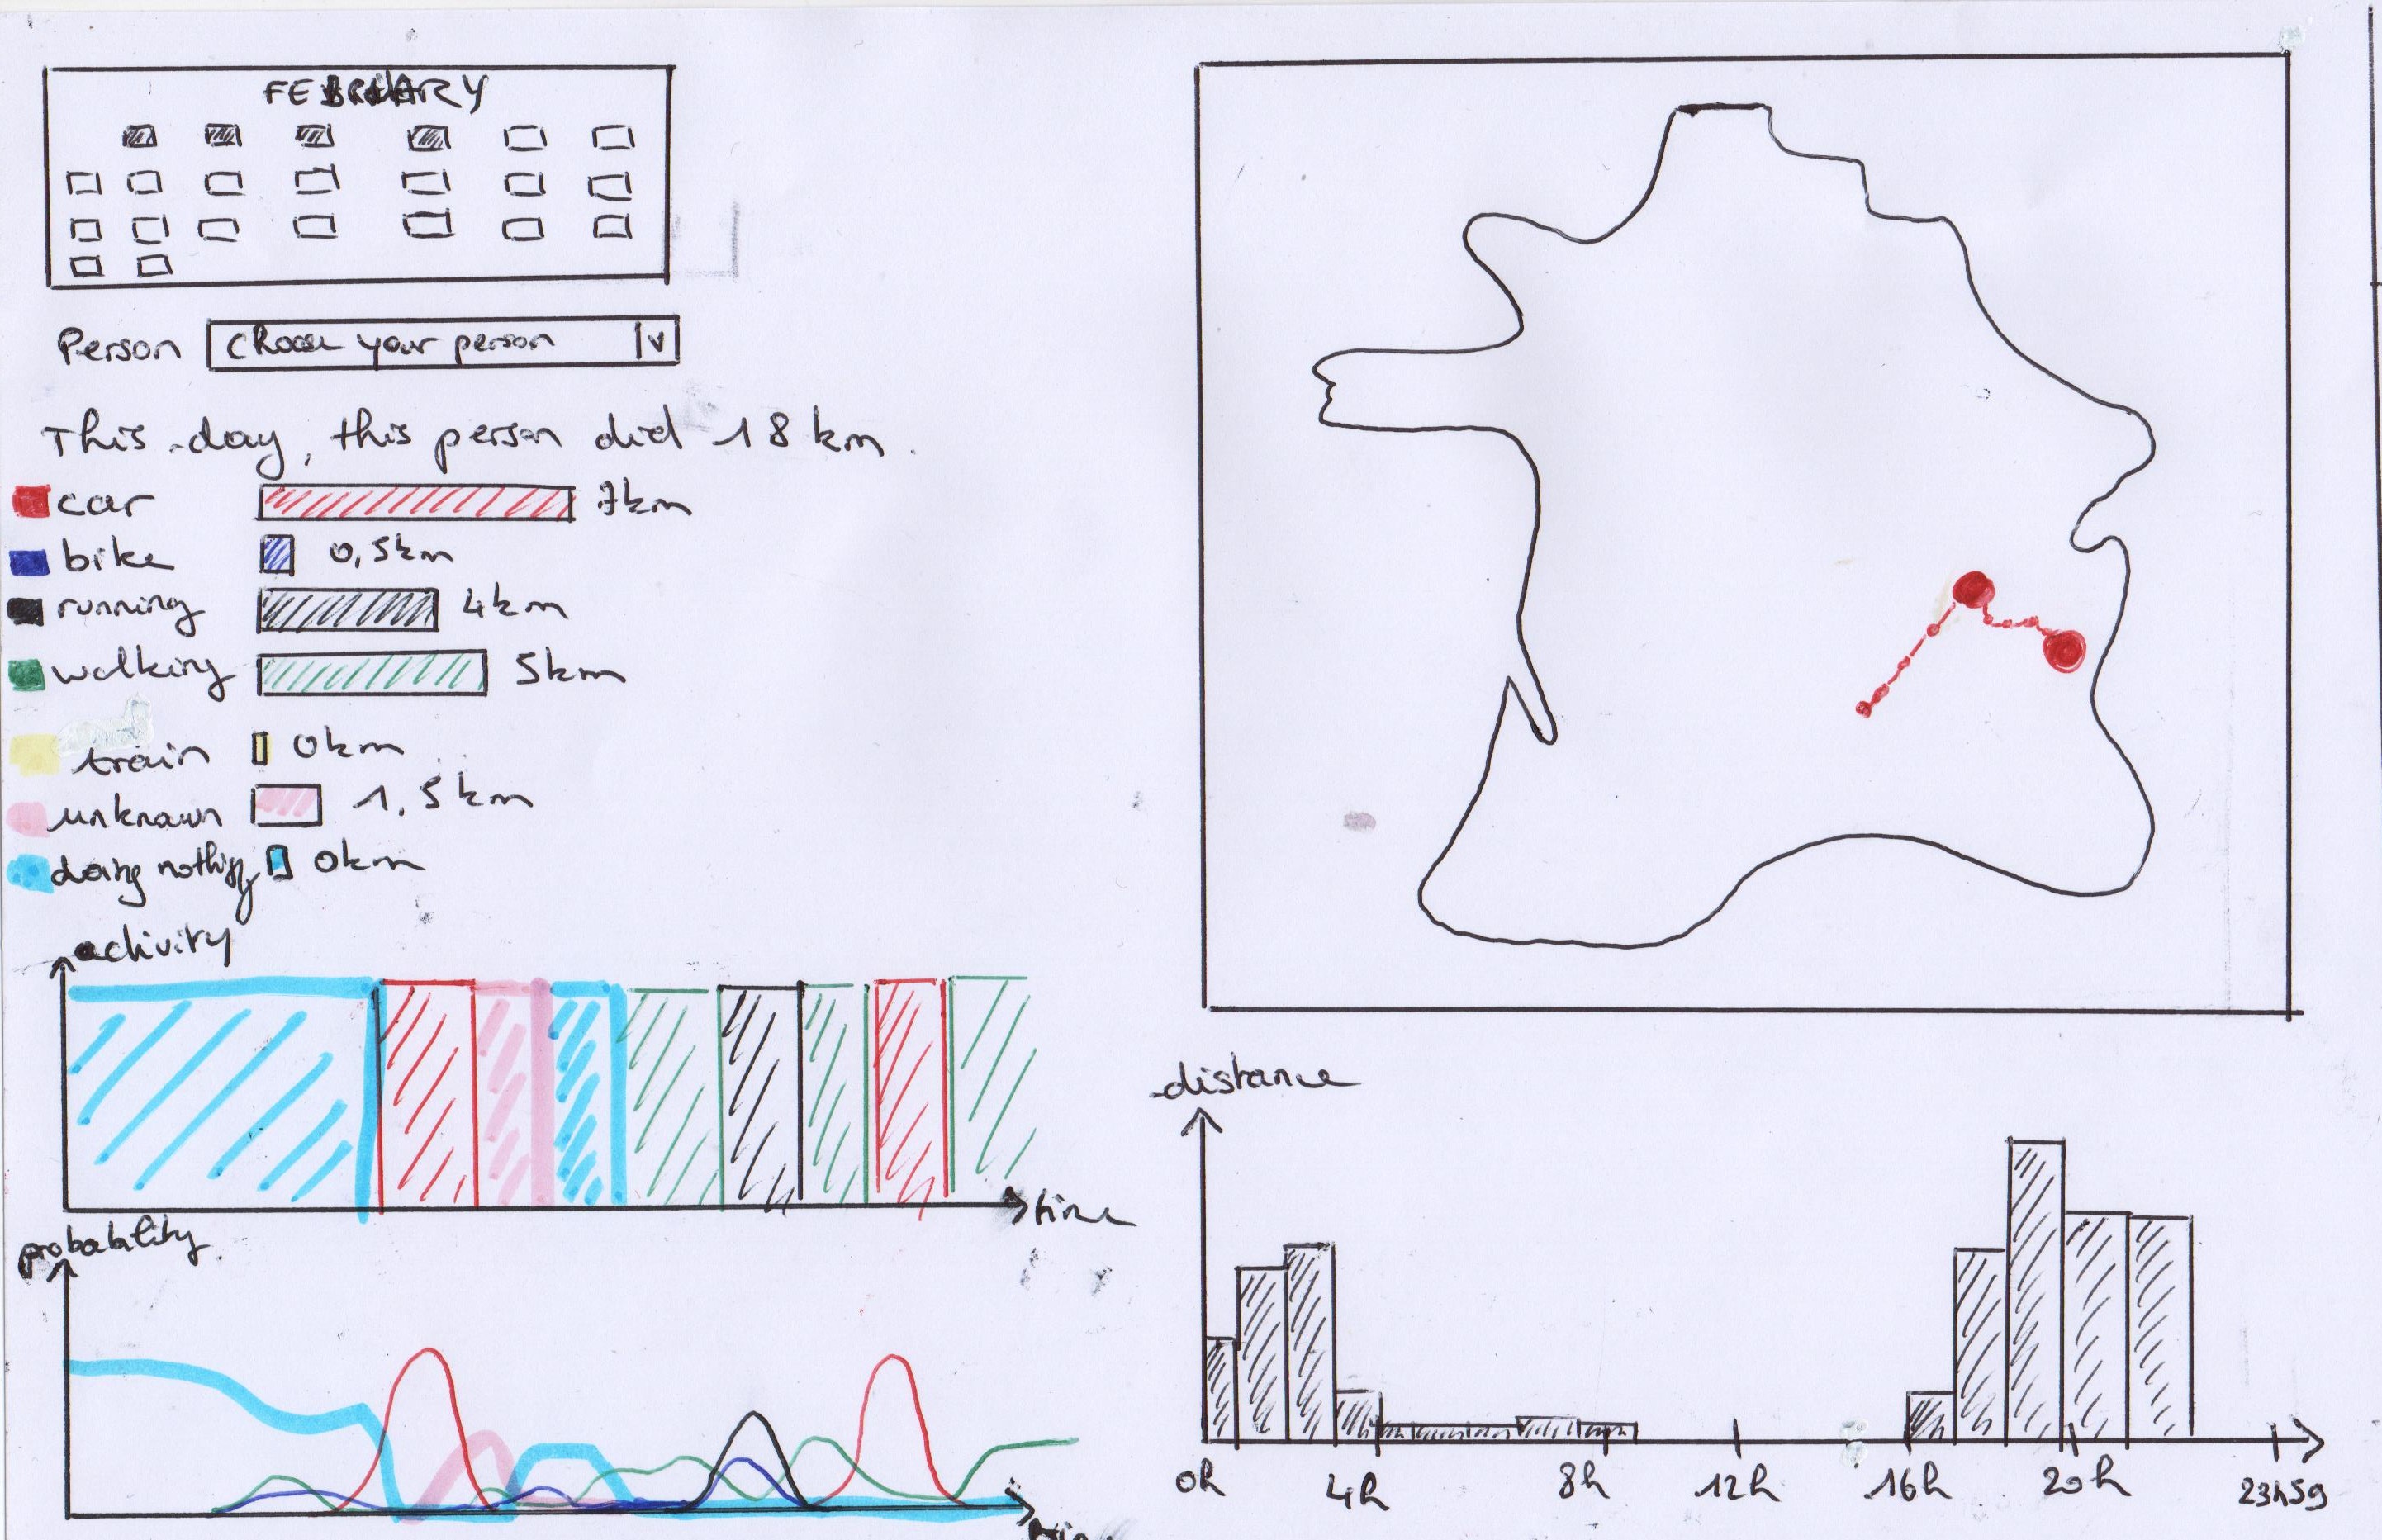 FEBRUARY
Person choose your person v
This day, this person did 18 km.
car 7km
bike 0,5km
running 4km
walking 5km
train 0km
unknown 1,5km
doing nothing 0km
activity
time
probability
distance
0h 4h 8h 12h 16h 20h 23h59